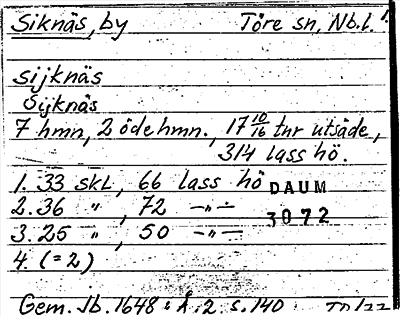 Siknäs, by Töre sn, Nb.l.
sijknäs
Sijknäs
7 hmn, 2 ödehmn., 17 10/16 tnr utsäde,
314 lass hö.
1. 33 skl, 66 lass hö DAUM
2. 36 " , 72 -"-
3. 25 " , 50 -"- 3072
4. (=2)
Gem. Jb. 1648: Å. 2. s. 140